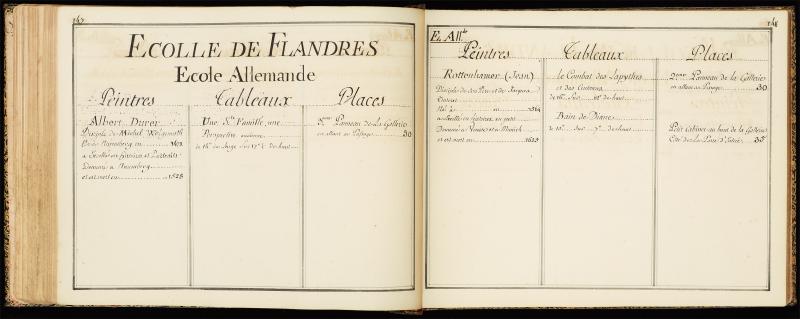 147
ECOLLE DE FLANDRES
Ecole Allemande
Peintres
Tableaux
Places
Albert Durer
Disciple de Michel
Né à Nuremberg en 1471
a Excellé en histoires et Portraits
Demeuré a Nuremberg
et est mort en 1528
Une Ste. Famille, une
Perspective
de 16o. de large Sur 17o.
2eme. Panneau de la Gallerie
en allant au Passage 30
148
E. Allde
Peintres
Tableaux
Places
Rottenhamer (Jean)
Disciple de son Pere et de
Né à en 1564
en histoires en petit
Demeuré a Venise et a Munich
et est mort en 1623
le Combat des Lapythes
et des Centaures
de
Bain de Diane
de
2eme. Panneau de la Gallerie
en allant au Passage 30
Petit Cabinet au bout de la Gallerie
Côté de la Place 35